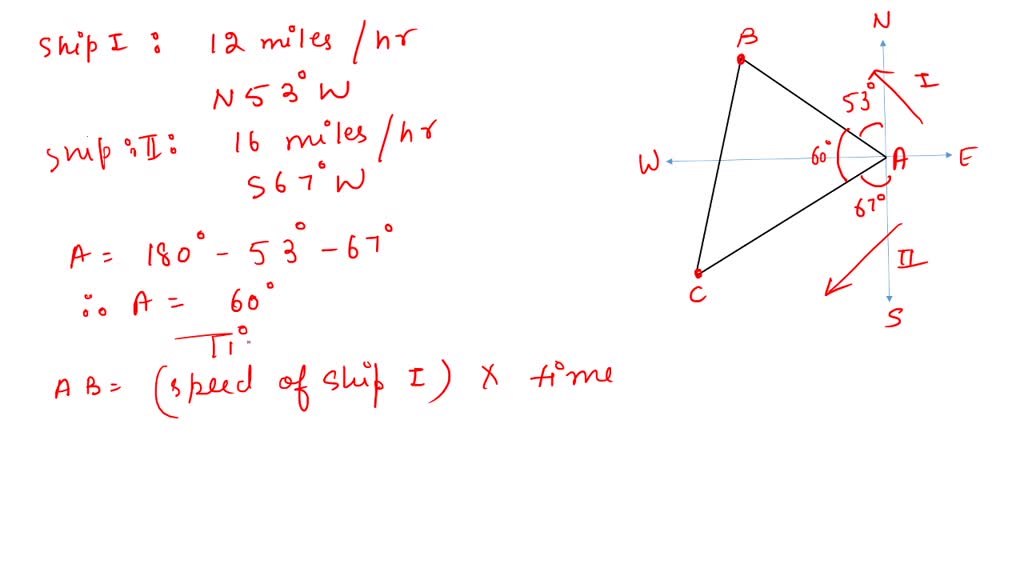 Ship I : 12 miles / hr
N 53° W
Ship : II : 16 miles / hr
S 67° W
A = 180° - 53° - 67°
∴ A = 60°
AB = (speed of ship I) × time
N
B
I
53°
W
60°
A
E
67°
II
C
S